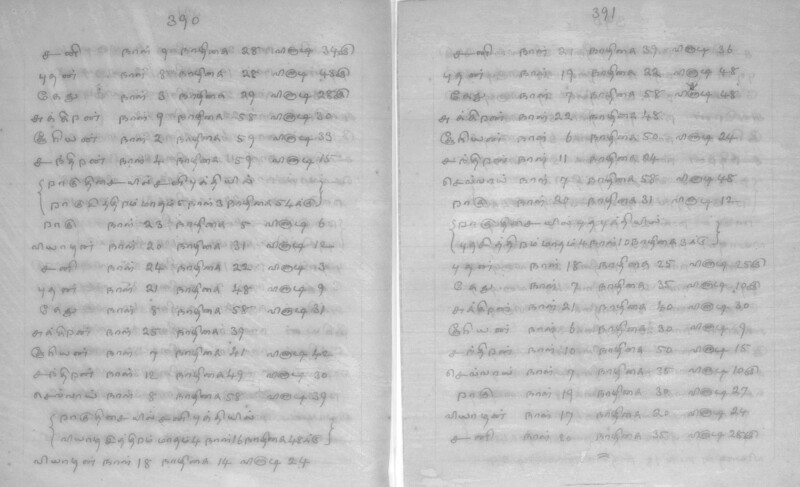 390
சனி நாள் 9 நாழிகை 28 விகுடி
புதன் நாள் 8 நாழிகை 28 விகுடி
கேது நாள் 3 நாழிகை 29 விகுடி
சுக்கிறன் நாள் 9 நாழிகை 58 விகுடி 30
சூரியன் நாள் 2 நாழிகை 59 விகுடி 33
சந்திறன் நாள் 4 நாழிகை 59 விகுடி 15
ராகுதிசையில் சனிபுத்தியில்
ராகு நாள் 23 நாழிகை 5 விகுடி 6
வியாழன் நாள் 20 நாழிகை 31 விகுடி 12
சனி நாள் 24 நாழிகை 22 விகுடி 3
புதன் நாள் 21 நாழிகை 48 விகுடி 9
கேது நாள் 8 நாழிகை 58 விகுடி 31
சுக்கிறன் நாள் 25 நாழிகை 39
சூரியன் நாள் 7 நாழிகை 41 விகுடி 42
சந்திறன் நாள் 12 நாழிகை 49 விகுடி 30
செவ்வாய் நாள் 8 நாழிகை 58 விகுடி 39
ராகுதிசையில் சனிபுத்தியில்
வியாழன் நாள் 18 நாழிகை 14 விகுடி 24
391
சனி நாள் 21 நாழிகை 39 விகுடி 36
புதன் நாள் 19 நாழிகை 22 விகுடி 48
கேது நாள் 7 நாழிகை 58 விகுடி 48
சுக்கிறன் நாள் 22 நாழிகை 48
சூரியன் நாள் 6 நாழிகை 50 விகுடி 24
சந்திறன் நாள் 11 நாழிகை 24
செவ்வாய் நாள் 7 நாழிகை 58 விகுடி 48
ராகு நாள் 20 நாழிகை 31 விகுடி 12
ராகுதிசையில் புதபுத்தியில்
புதன் நாள் 18 நாழிகை 25 விகுடி
கேது நாள் 7 நாழிகை 35 விகுடி
சுக்கிறன் நாள் 21 நாழிகை 40 விகுடி 30
சூரியன் நாள் 6 நாழிகை 30 விகுடி 9
சந்திறன் நாள் 10 நாழிகை 50 விகுடி 15
செவ்வாய் நாள் 7 நாழிகை 35 விகுடி
ராகு நாள் 19 நாழிகை 30 விகுடி 27
வியாழன் நாள் 17 நாழிகை 20 விகுடி 24
சனி நாள் 20 நாழிகை 35 விகுடி